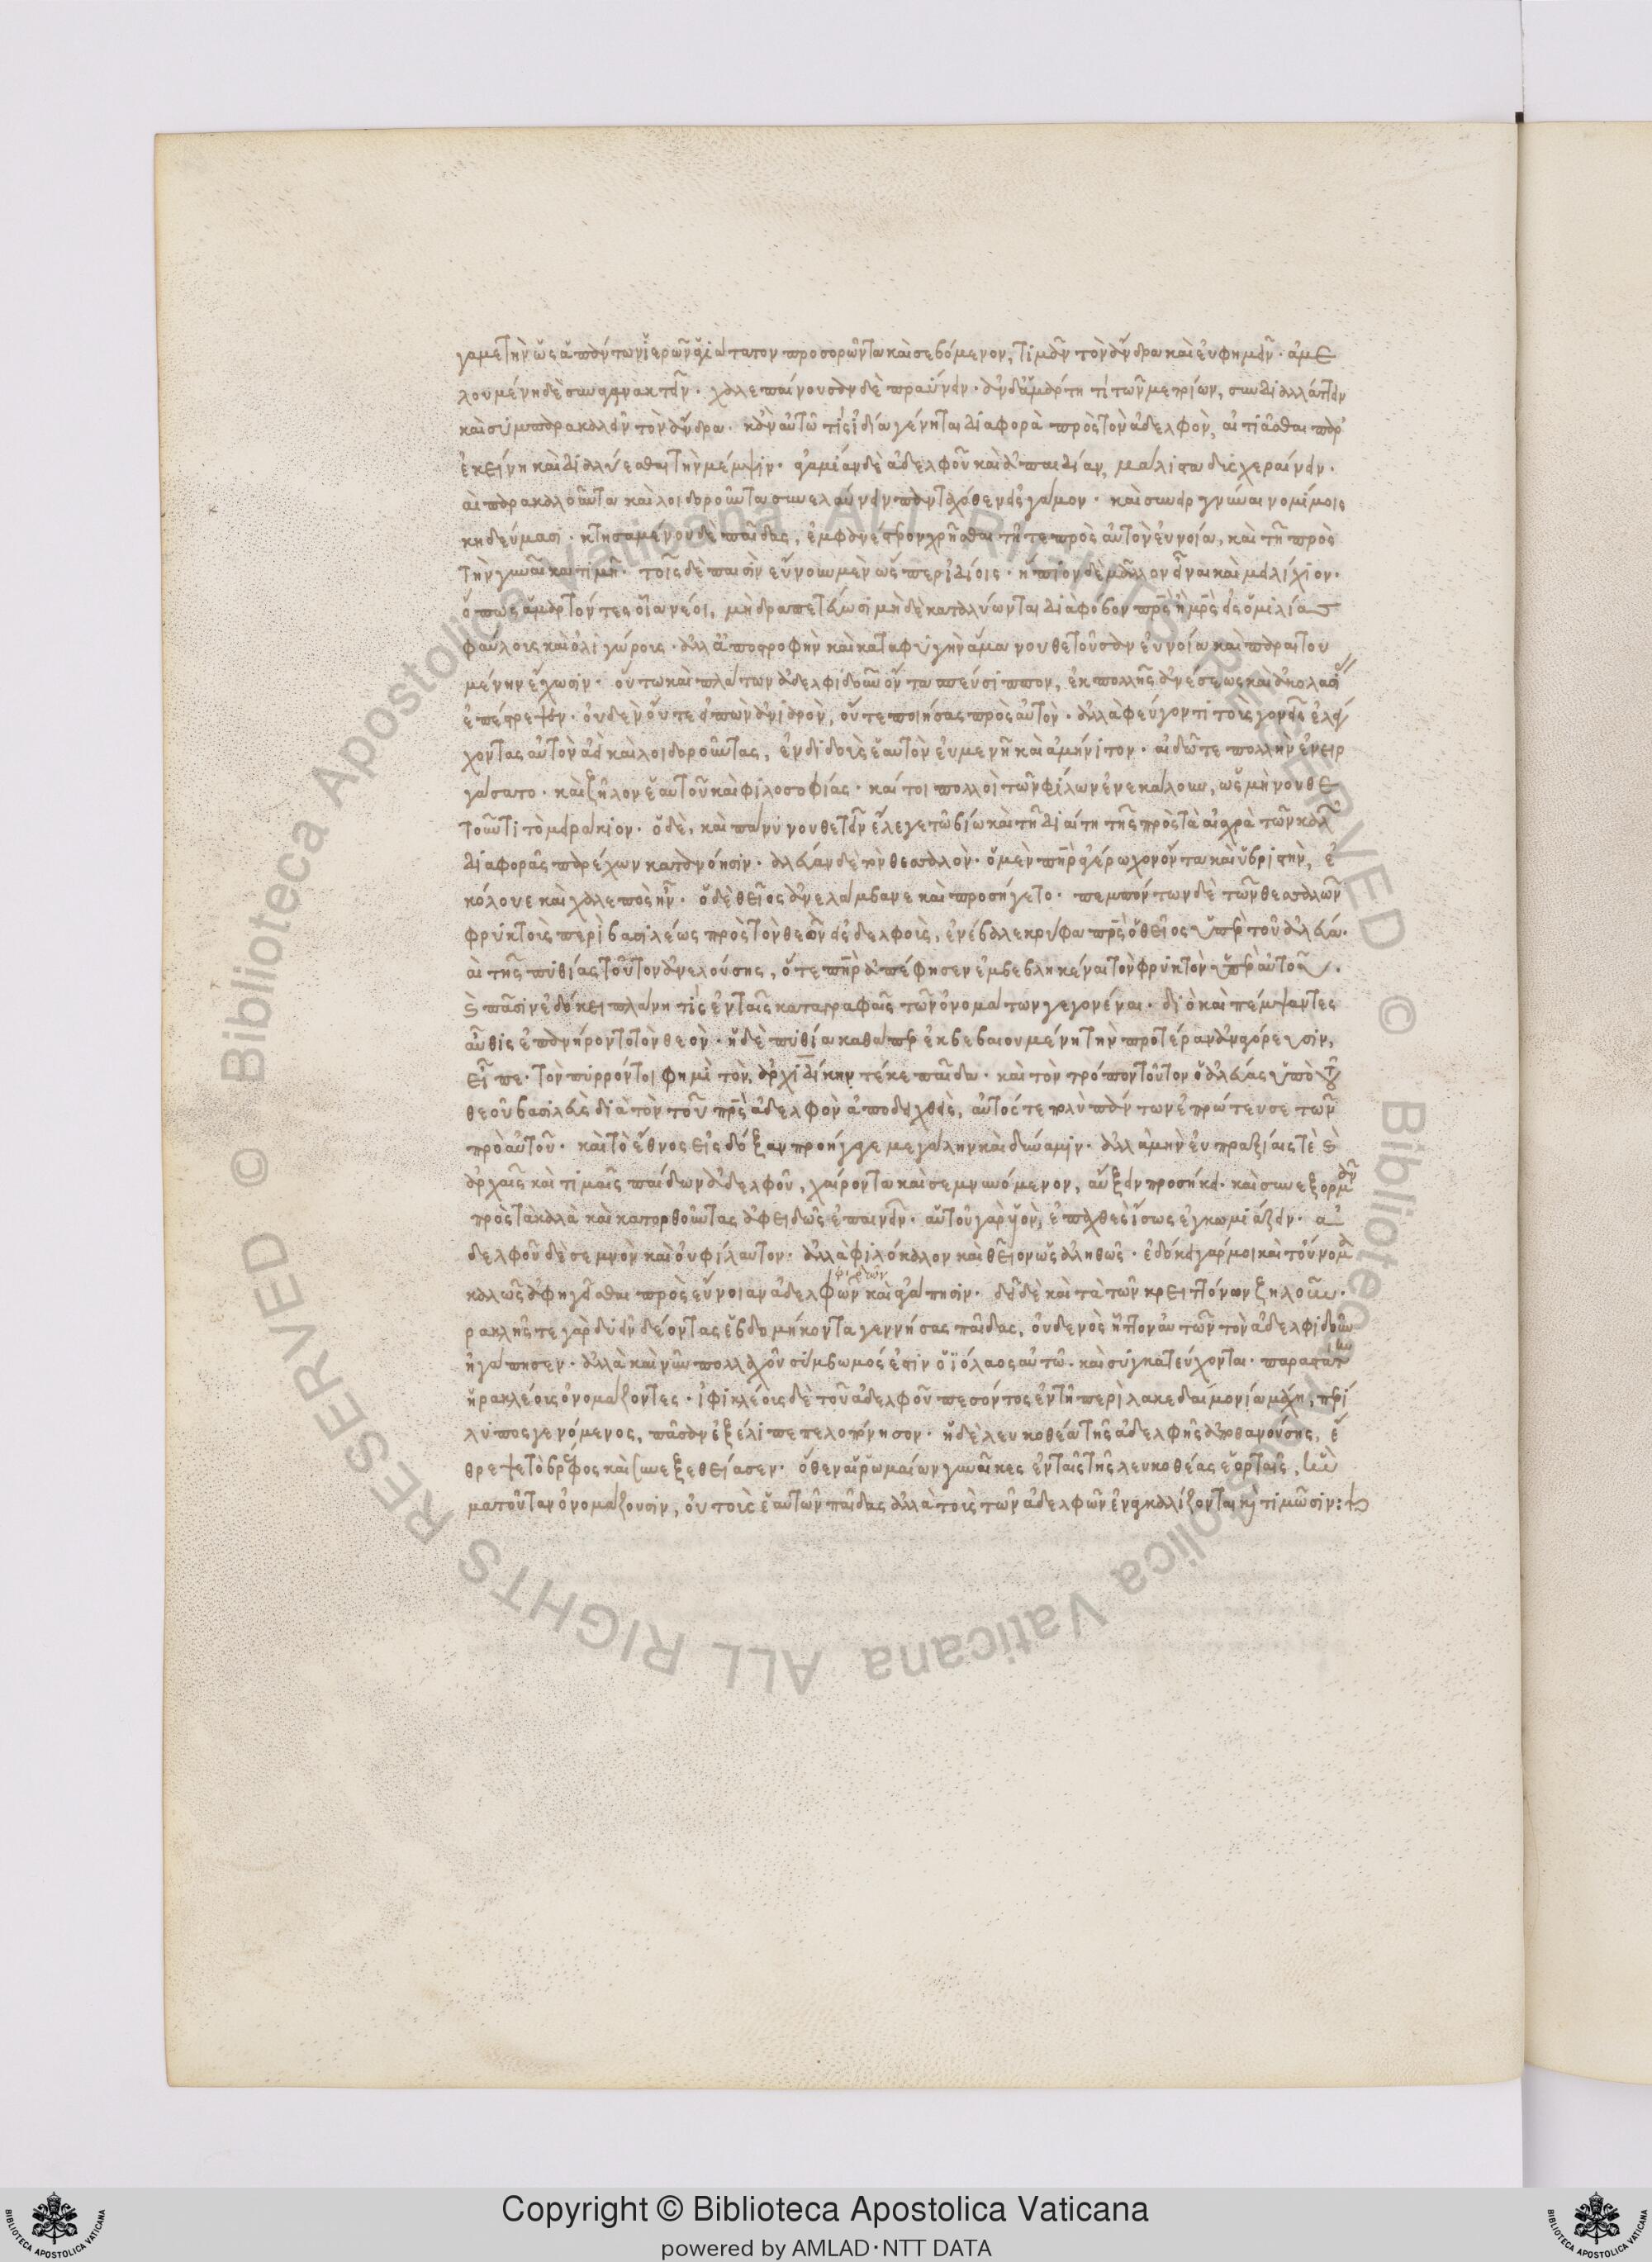 γαμετὴν ὡς ἁπάντων ἱερῶν ἁγιώτατον προσορῶντα καὶ σεβόμενον, τιμᾶν τὸν ἄνδρα καὶ εὐφημεῖν. ἀμε
λουμένη δὲ συναγανακτεῖν. χαλεπαίνουσαν δὲ πραΰνειν. ἂν δ' ἁμάρτη τι τῶν μετρίων, συνδιαλλάττειν
καὶ συμπαρακαλεῖν τὸν ἄνδρα. κἂν αὐτῶ τις ἰδία γένηται διαφορὰ πρὸς τὸν ἀδελφὸν, αἰτιᾶσθαι παρ'
ἐκείνη καὶ διαλύεσθαι τὴν μέμψιν. ἀγαμίαν δὲ ἀδελφοῦ καὶ ἀπαιδίαν, μάλιστα δυσχεραίνειν.
καὶ παρακαλοῦντα καὶ λοιδοροῦντα συνελαύνειν πανταχόθεν εἰς γάμον. καὶ συνειργνύναι νομίμοις
κηδεύμασι. κτησαμένου δὲ παῖδας, ἐμφανέστερον χρῆσθαι τῆ τε πρὸς αὐτὸν εὐνοία, καὶ τῆ πρὸς
τὴν γυναῖκα τιμῆ. τοῖς δὲ παισὶν εὔνουν μὲν ὥσπερ ἰδίοις. ἤπιον δὲ μᾶλλον εἶναι καὶ μειλίχιον.
ὅπως ἁμαρτόντες οἷα νέοι, μὴ δραπετεύωσι μὴδὲ καταδύωνται διὰ φόβον πρς ἢ μρς εἰς ὁμιλίας
φαύλοις καὶ ὀλιγώροις. ἀλλ' ἀποστροφὴν καὶ καταφυγὴν ἅμα νουθετοῦσαν εὐνοία καὶ παραιτου
μένην ἔχωσιν. οὕτω καὶ πλάτων ἀδελφιδοῦν ὄντα σπεύσιππον, ἐκ πολλῆς ἀνέσεως καὶ ἀκολασίας
ἐπέστρεψεν. οὐδὲν οὔτε εἰπὼν ἀνιαρὸν, οὔτε ποιήσας πρὸς αὐτὸν. ἀλλὰ φεύγοντι τοὺς γονεῖς ἐλέγ
χοντας αὐτὸν ἀεὶ καὶ λοιδοροῦντας, ἐνδιδοὺς ἑαυτὸν εὐμενῆ καὶ ἀμήνιτον. αἰδῶ τε πολλὴν ἐνειρ
γάσατο. καὶ ζῆλον ἑαυτοῦ καὶ φιλοσοφίας. καίτοι πολλοὶ τῶν φίλων ἐνεκάλουν, ὡς μὴ νουθε
τοῦντι τὸ μειράκιον. ὁ δὲ, καὶ πάνυ νουθετεῖν ἔλεγε τῶ βίω καὶ τῆ διαίτη τῆς πρὸς τὰ αἰσχρὰ τῶν καλῶν
διαφορᾶς παρέχων κατανόησιν. ἀλεύαν δὲ τὸν θεσσαλὸν. ὁ μὲν πηρ ἀγέρωχον ὄντα καὶ ὑβριστὴν, ἐ
κόλουε καὶ χαλεπὸς ἦν. ὁ δὲ θεῖος ἀνελάμβανε καὶ προσήγετο. πεμπόντων δὲ τῶν θεσσαλῶν
φρυκτοὺς περὶ βασιλέως πρὸς τὸν θεὸν εἰς δελφοὺς, ἐνέβαλε κρύφα πρς ὁ θεῖος ὑπὲρ τοῦ ἀλεύα.
καὶ τῆς πυθίας τοῦτον ἀνελούσης, ὅ τε πηρ ἀπέφησεν ἐμβεβληκέναι τὸν φρυκτὸν ὑπὲρ αὐτοῦ.
καὶ πᾶσιν ἐδόκει πλάνη τις ἐν ταῖς καταγραφαῖς τῶν ὀνομάτων γεγονέναι. διὸ καὶ πέμψαντες
αὖθις ἐπανήροντο τὸν θεὸν. ἡ δὲ πυθία καθάπερ ἐκβεβαιουμένη τὴν προτέραν ἀναγόρευσιν,
εἶπε. τὸν πύρρόν τοι φημὶ τὸν ἀρχιδίκην τέκε παῖδα. καὶ τὸν τρόπον τοῦτον ὁ ἀλεύας ὑπὸ τοῦ
θεοῦ βασιλεὺς διὰ τὸν τοῦ πρς ἀδελφὸν ἀποδειχθεὶς, αὐτός τε πολὺ πάντων ἐπρώτευσε τῶν
πρὸ αὐτοῦ. καὶ τὸ ἔθνος εἰς δόξαν προήγαγε μεγάλην καὶ δύναμιν. ἀλλὰ μὴν εὐπραξίαις τὲ καὶ
ἀρχαῖς καὶ τιμαῖς παίδων ἀδελφοῦ, χαίροντα καὶ σεμνυνόμενον, αὔξειν προσήκει. καὶ συνεξορμᾶν
πρὸς τὰ καλὰ καὶ κατορθοῦντας ἀφειδῶς ἐπαινεῖν. αὑτοῦ γὰρ υἱὸν, ἐπαχθὲς ἴσως ἐγκωμιάζειν. ἀ
δελφοῦ δὲ σεμνὸν καὶ οὐ φίλαυτον. ἀλλὰ φιλόκαλον καὶ θεῖον ὡς ἀληθῶς. ἐδόκει γάρ μοι καὶ τοὔνομα
καλῶς ἀφηγεῖσθαι πρὸς εὔνοιαν ἀδελφῶν καὶ ἀγάπησιν. δεῖ δὲ καὶ τὰ τῶν κρειττόνων ζηλοῦν.
ρακλῆς τε γὰρ δυεῖν δέοντας ἑβδομήκοντα γεννήσας παῖδας, οὐδενὸς ἧττον αὐτῶν τὸν ἀδελφιδοῦν
ἠγάπησεν. ἀλλὰ καὶ νῦν πολλαχοῦ σύμβωμός ἐστιν ὁ ἰόλαος αὐτῶ. καὶ συγκατεύχονται. παραστάτην
ἡρακλέους ὀνομάζοντες. ἰφικλέους δὲ τοῦ ἀδελφοῦ πεσόντος ἐν τῆ περὶ λακεδαίμονα μάχη, περί
λυπος γενόμενος, πᾶσαν ἐξέλιπε πελοπόννησον. ἡ δὲ λευκοθέα τῆς ἀδελφῆς ἀποθανούσης, ἔ
θρεψε τὸ βρέφος καὶ συνεξεθείασεν. ὅθεν αἱ ῥωμαίων γυναῖκες ἐν ταῖς τῆς λευκοθέας ἑορταῖς, ἣν
ματοῦταν ὀνομάζουσιν, οὐ τοὺς ἑαυτῶν παῖδας ἀλλὰ τοὺς τῶν ἀδελφῶν ἐναγκαλίζονται καὶ τιμῶσιν:
Copyright © Biblioteca Apostolica Vaticana
powered by AMLAD·NTT DATA
© Biblioteca Apostolica Vaticana ALL RIGHTS RESERVED
© Biblioteca Apostolica Vaticana ALL RIGHTS RESERVED
BIBLIOTECA APOSTOLICA VATICANA
BIBLIOTECA APOSTOLICA VATICANA